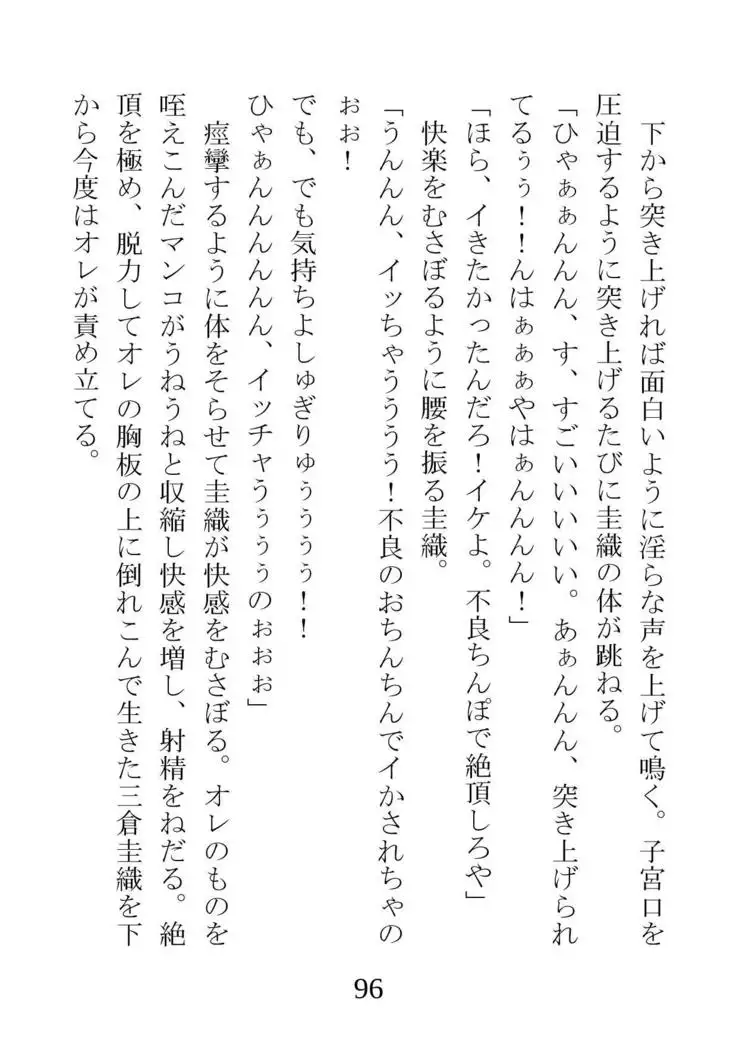 下から突き上げれば面白いように淫らな声を上げて鳴く。子宮口を
圧迫するように突き上げるたびに圭織の体が跳ねる。
「ひゃぁぁんんん、す、すごいいいいい。あぁんんん、突き上げられ
てるぅぅ！！んはぁぁぁやはぁんんんん！」
「ほら、イきたかったんだろ！イケよ。不良ちんぽで絶頂しろや」
快楽をむさぼるように腰を振る圭織。
「うんんん、イッちゃうううう！不良のおちんちんでイかされちゃの
ぉぉ！
でも、でも気持ちよしゅぎりゅぅぅうう！！
ひゃぁんんんんんん、イッチャうぅぅぅのぉぉぉ」
痙攣するように体をそらせて圭織が快感をむさぼる。オレのものを
咥えこんだマンコがうねうねと収縮し快感を増し、射精をねだる。絶
頂を極め、脱力してオレの胸板の上に倒れこんで生きた三倉圭織を下
から今度はオレが責め立てる。
96